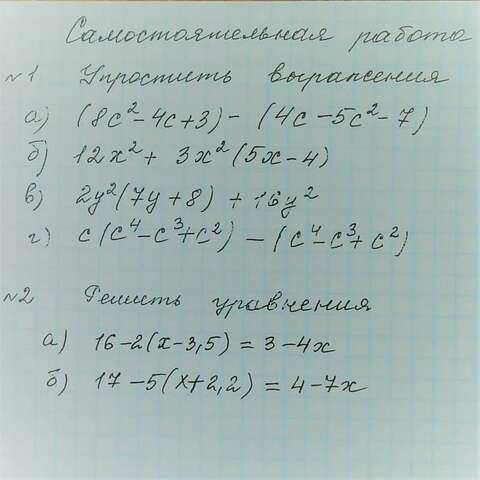 Самостоятельная работа
№1 Упростить выражения
а) (8c²-4c+3)-(4c-5c²-7)
б) 12x²+3x²(5x-4)
в) 2y²(7y+8)+16y²
г) c(c⁴-c³+c²)-(c⁴-c³+c²)
№2 Решить уравнения
а) 16-2(x-3,5)=3-4x
б) 17-5(x+2,2)=4-7x